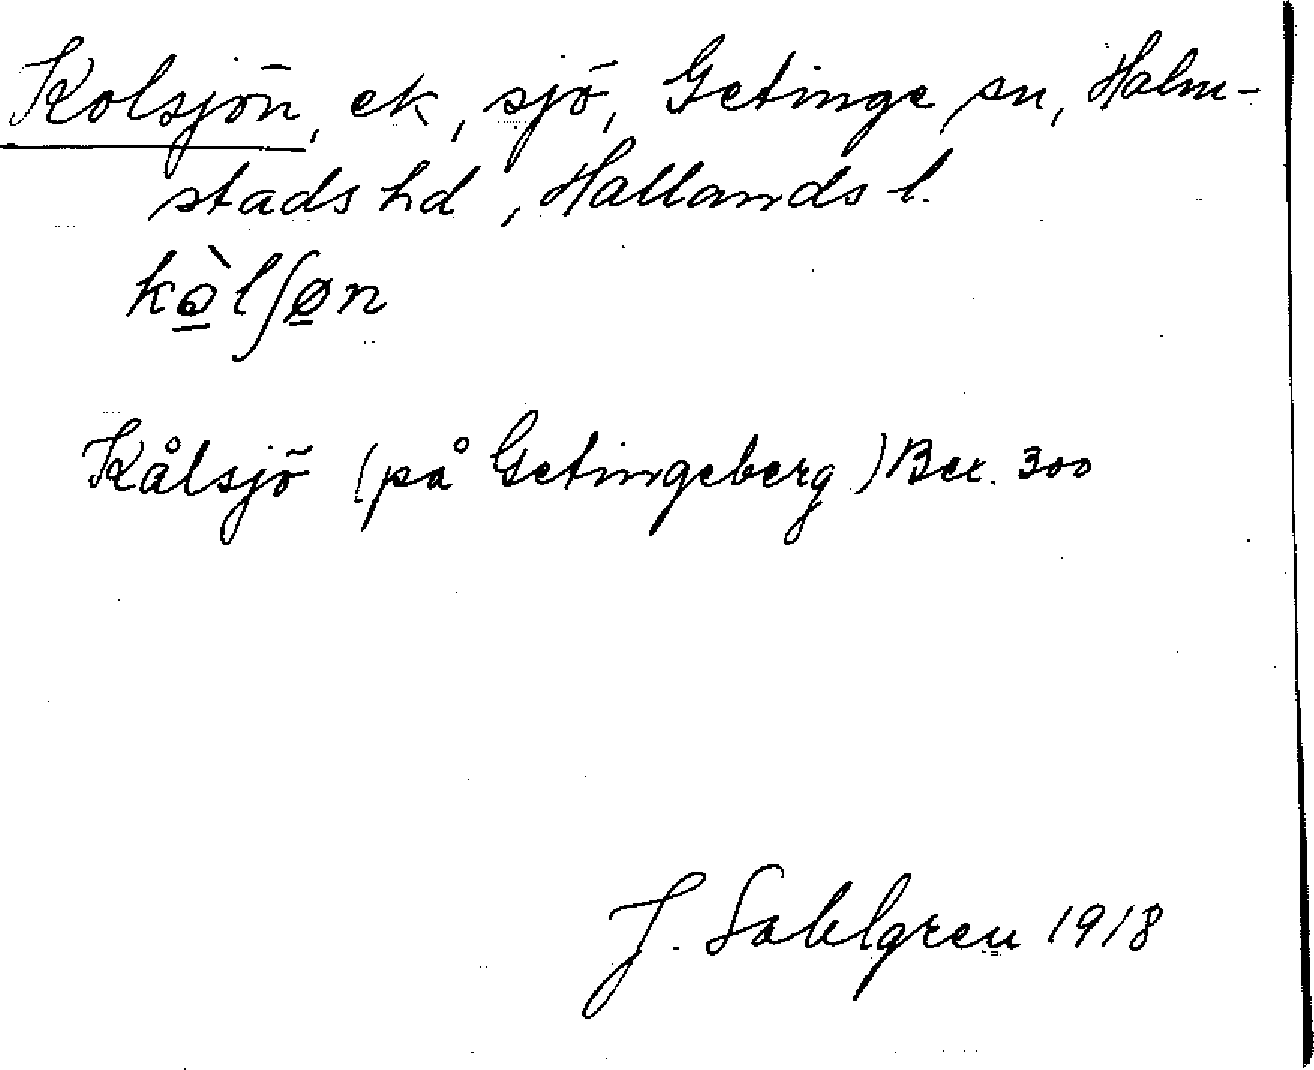 Kolsjön, ek, sjö, Getinge sn, Halm-
stads hd, Hallands l.
kò̠lʃø̠n
Kålsjö (på Getingeberg) Bex. 300
J. Sahlgren 1918